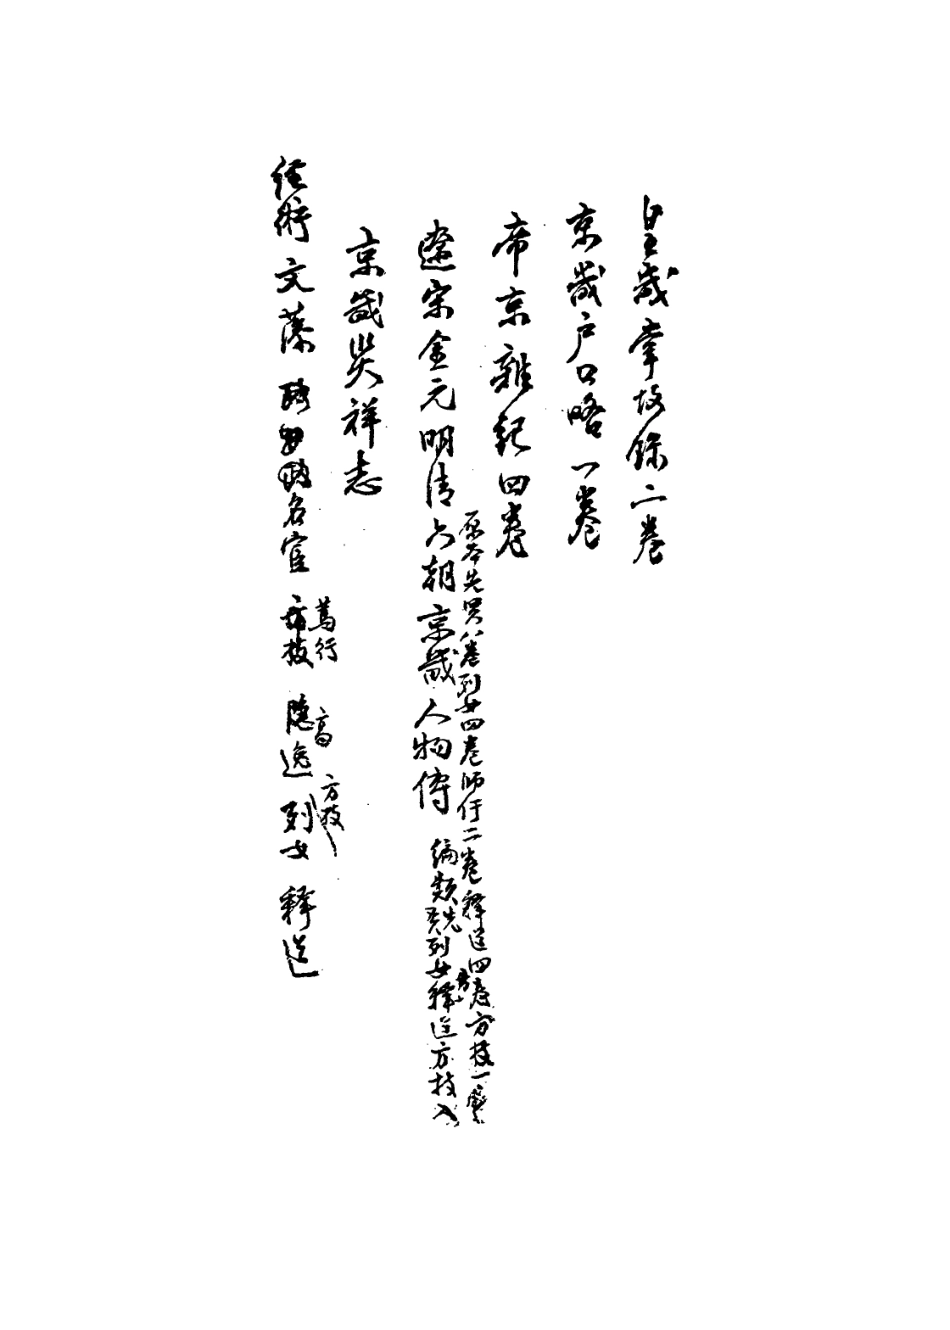 皇畿掌故錄二卷
京畿戶口略一卷
帝京雜記四卷
原本先哲八卷列女四卷師儒二卷釋道四卷方技一卷
遼宋金元明清六朝京畿人物傳 編類先列女釋道方技入
京畿災祥志
經術 文藻 名宦 方技 隱逸 列女 釋道
篤行 高 方技